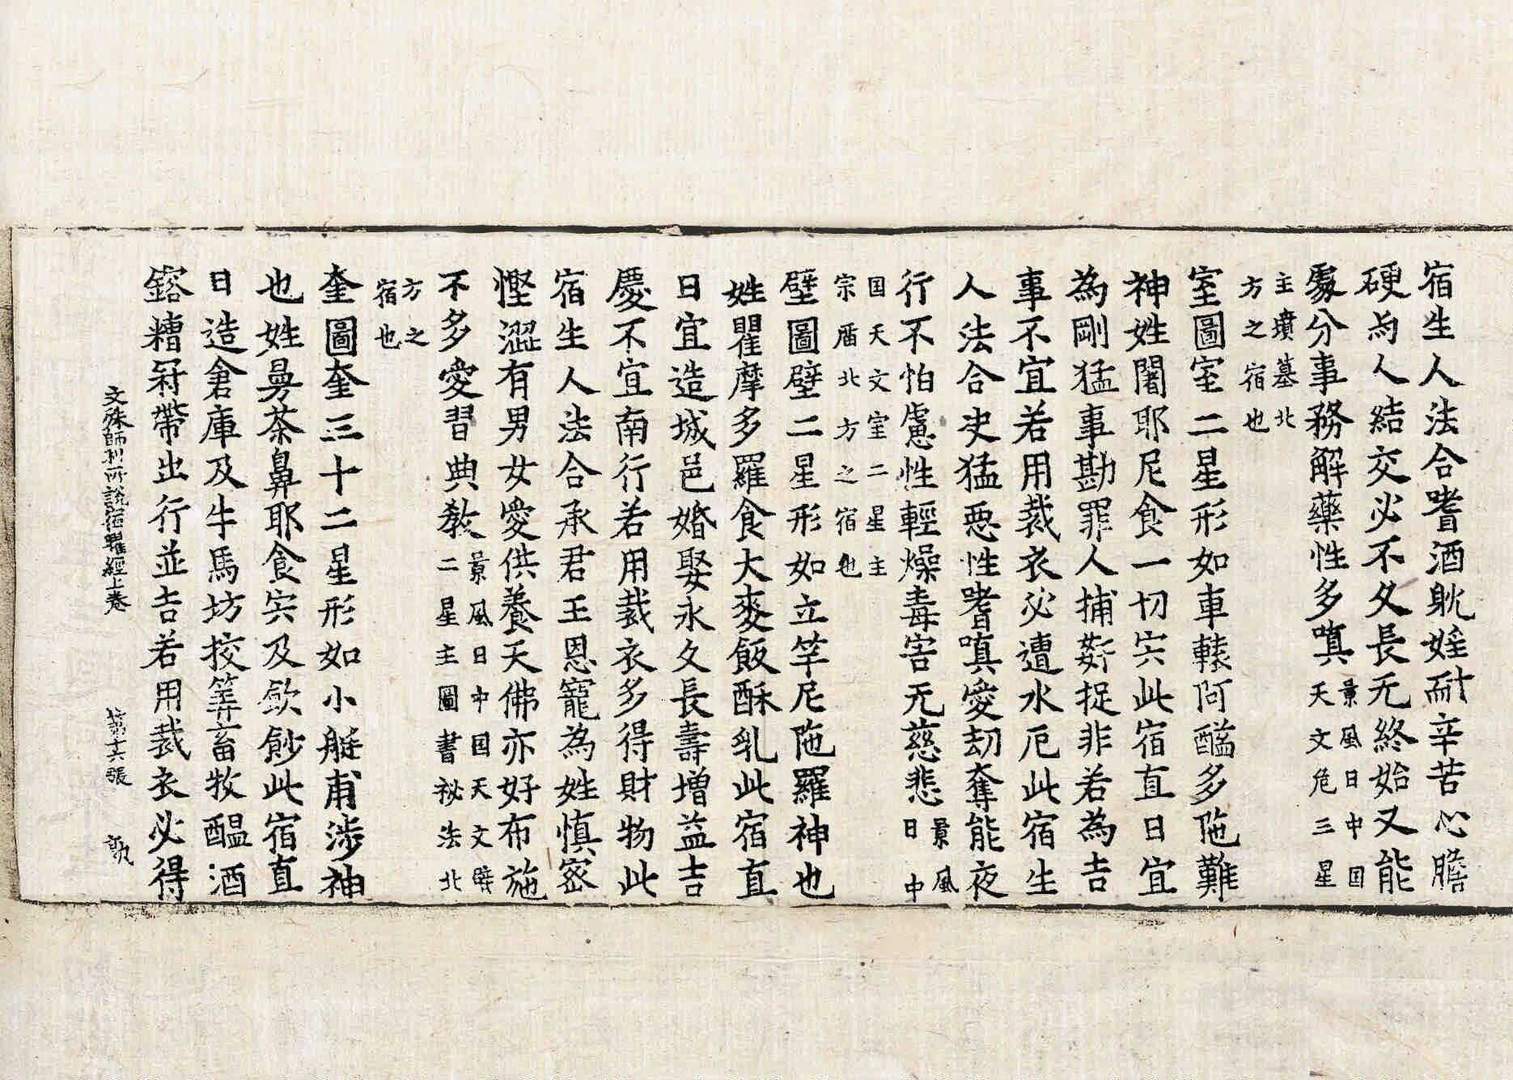 宿生人法合嗜酒躭婬耐辛苦心膽
硬与人結交必不久長无終始又能
處分事務解藥性多嗔景風日中国天文危三星
主墳墓北方之宿也
室圖室二星形如車轅阿醯多陁難
神姓闍耶尼食一切宍此宿直日宜
為剛猛事勘罪人捕姧捉非若為吉
事不宜若用裁衣必遭水厄此宿生
人法合㕜猛惡性嗜嗔愛劫奪能夜
行不怕處性輕燥毒害无慈悲景風日中
国天文室二星主宗庿北方之宿也
壁圖壁二星形如立竿尼陁羅神也
姓瞿摩多羅食大麥飯酥乳此宿直
日宜造城邑婚娶永久長壽增益吉
慶不宜南行若用裁衣多得財物此
宿生人法合承君王恩寵為姓慎密
慳澀有男女愛供養天佛亦好布施
不多愛習典教景風日中国天文壁二星主圖書秘法北
方之宿也
奎圖奎三十二星形如小艇甫涉神
也姓㬅茶鼻耶食宍及飲飱此宿直
日造倉庫及牛馬坊挍筭畜牧醖酒
鎔糟冠帶出行並吉若用裁衣必得
文殊師利所說宿曜經上卷 第十六張